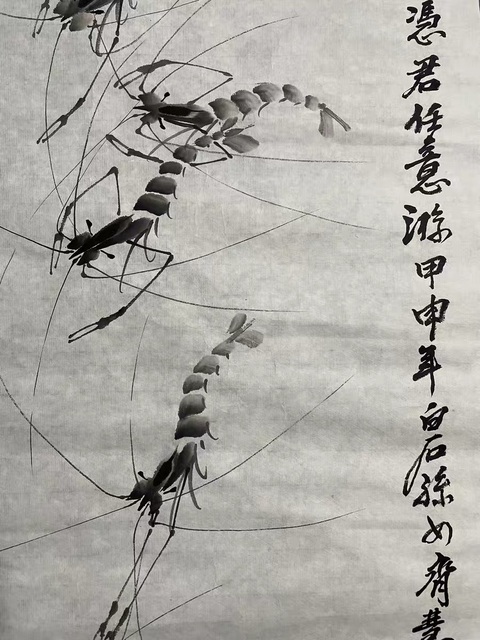 憑君任意游甲申年白石孫女齊慧